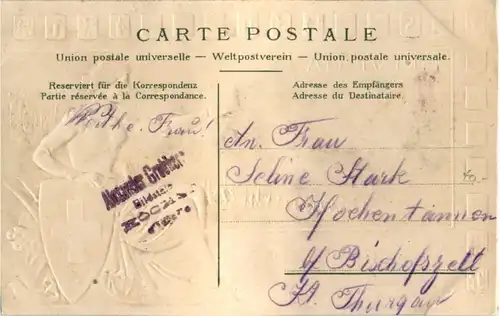 CARTE POSTALE
Union postale universelle — Weltpostverein — Union postale universale.
Reserviert für die Korrespondenz
Partie réservée à la Correspondance.
Adresse des Empfängers
Adresse du Destinataire.
Werthe Frau!
An Frau
Seline Stark
Hochentannen
b/ Bischofszell
Kt. Thurgau
Alexander